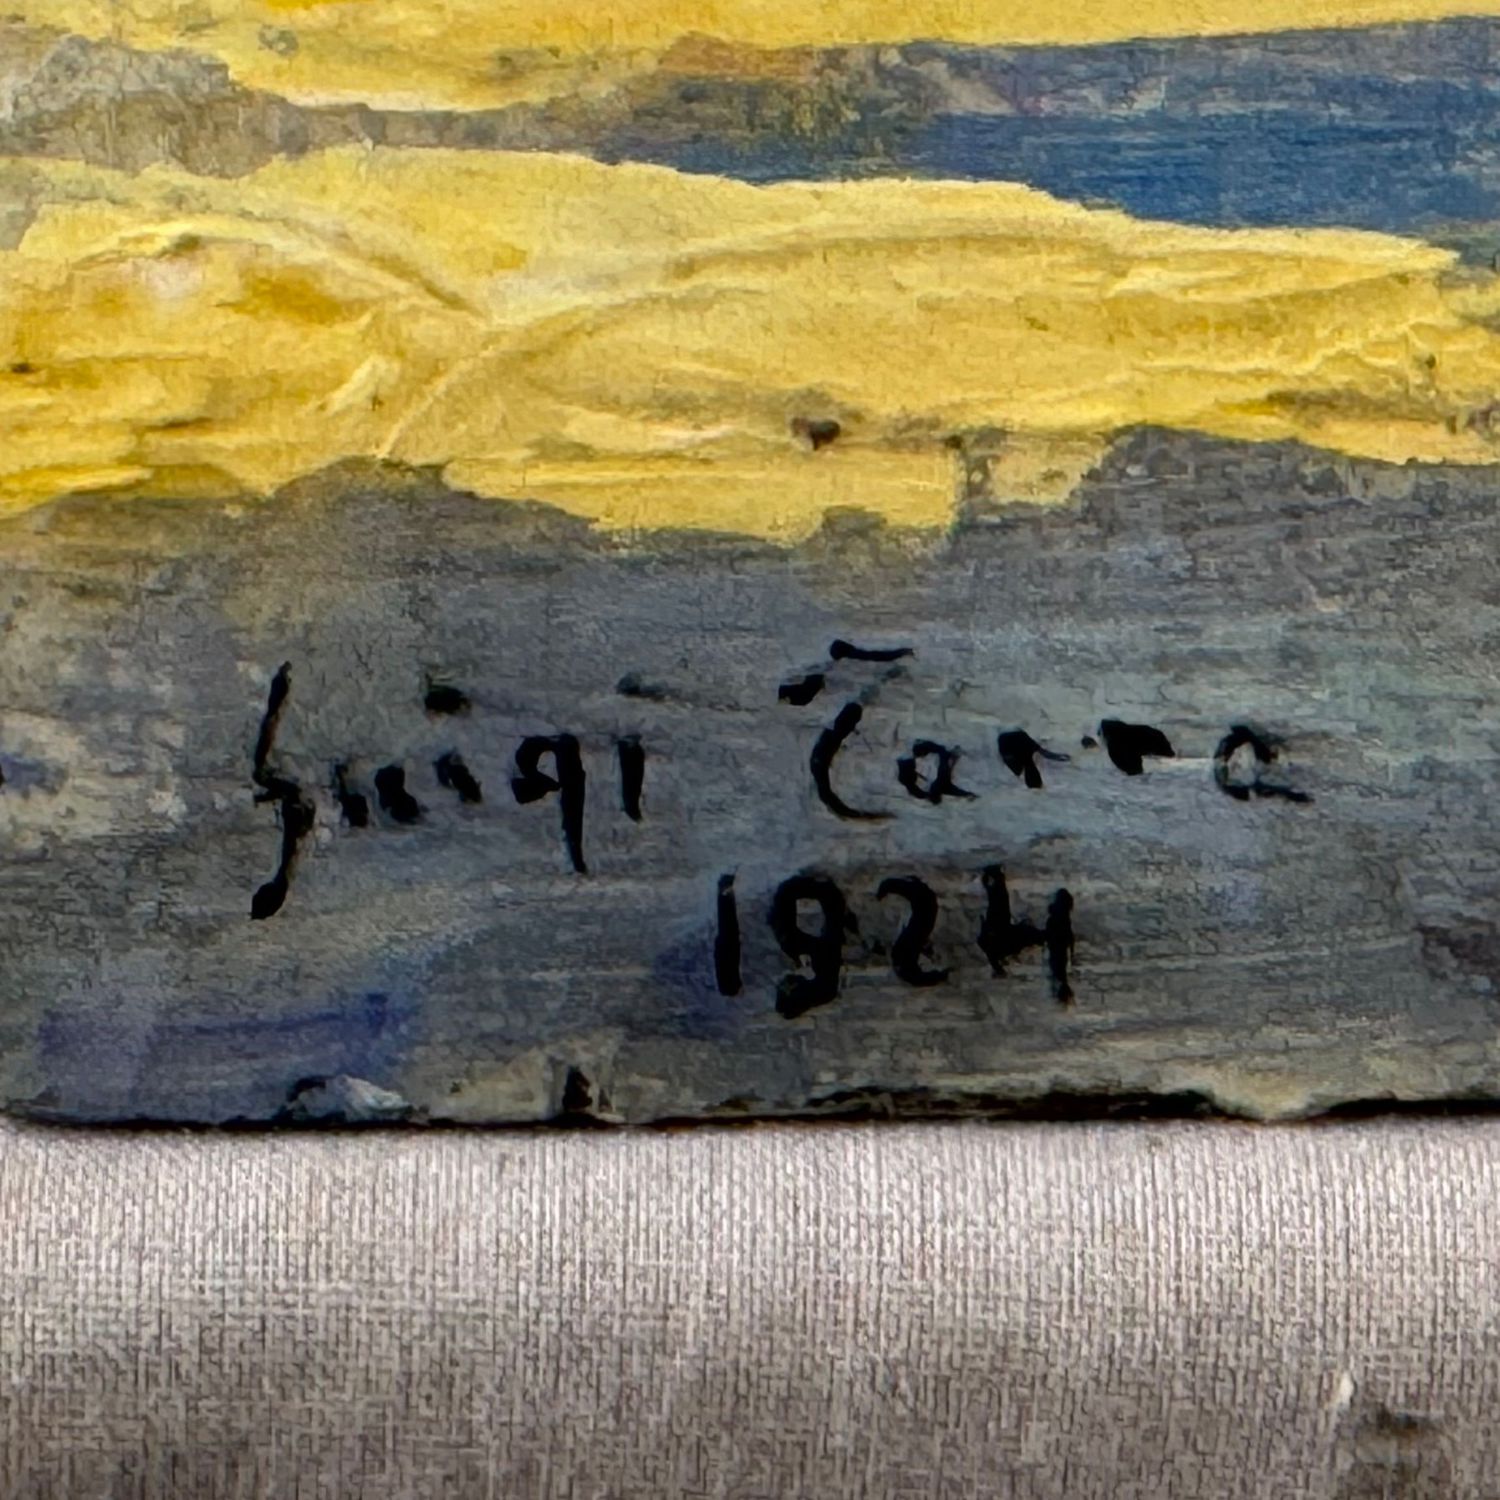 Luigi Zarra
1924